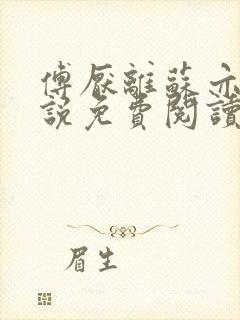 傅厭離蘇亦
說免費閱讀
眉生